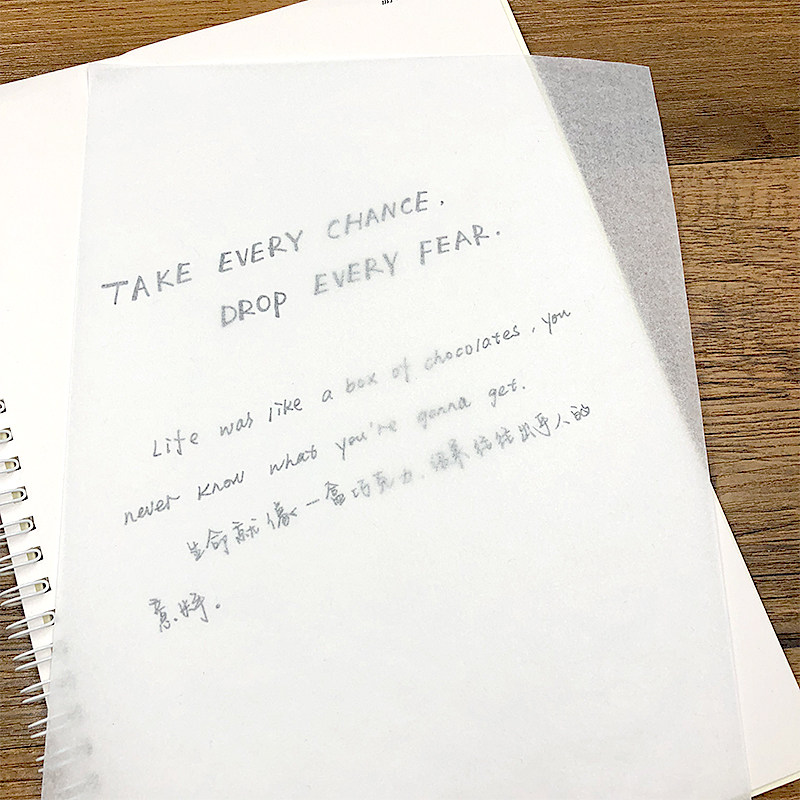 TAKE EVERY CHANCE.
DROP EVERY FEAR.
Life was like a box of chocolates, you
never know what you're gonna get.
生命就像一盒巧克力.结果往往出乎人的
意料。